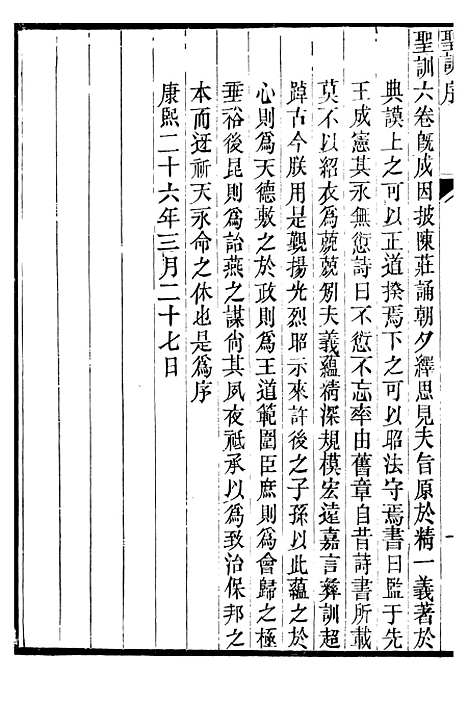 聖訓序
聖訓六卷旣成因披陳莊誦朝夕繹思見夫旨原於精一義著於
典謨上之可以正道揆焉下之可以昭法守焉書曰監于先
王成憲其永無愆詩曰不愆不忘率由舊章自昔詩書所載
莫不以紹衣爲兢兢矧夫義蘊精深規模宏遠嘉言彝訓超
踔古今朕用是覲揚光烈昭示來許後之子孫以此蘊之於
心則爲天德敷之於政則爲王道範圍臣庶則爲會歸之極
垂裕後昆則爲詒燕之謀尙其夙夜祗承以爲致治保邦之
本而迓祈天永命之休也是爲序
康熙二十六年三月二十七日